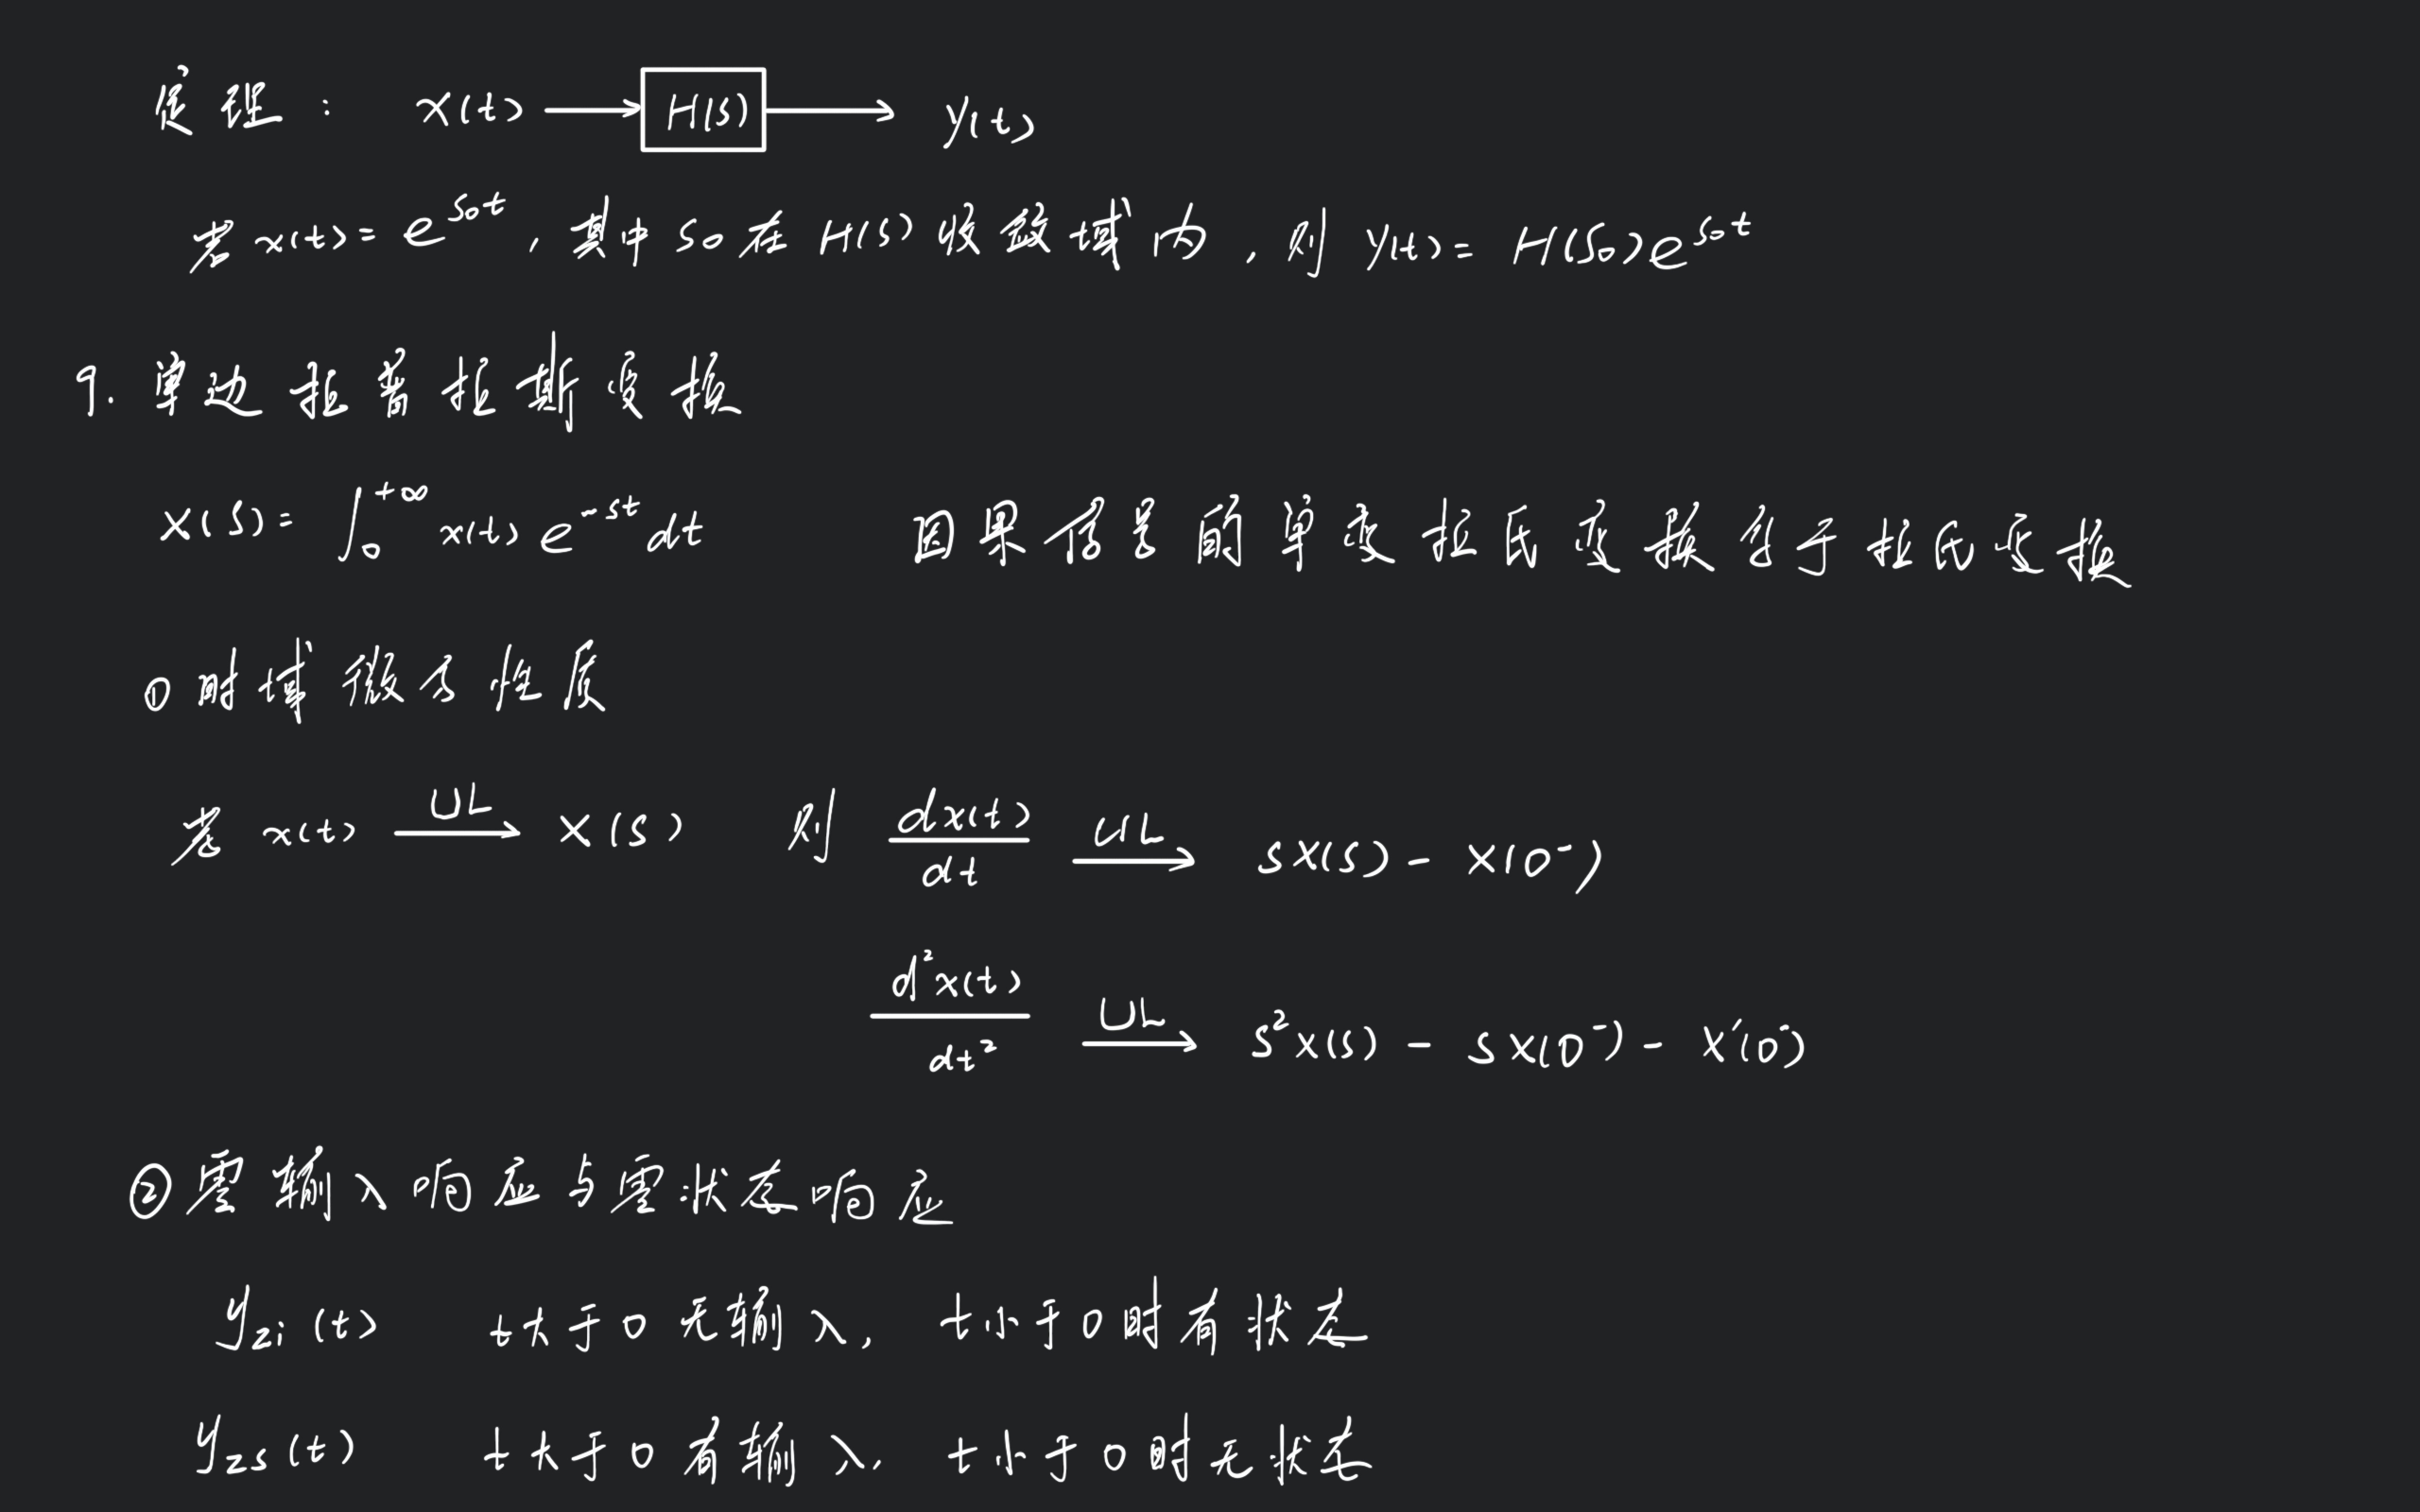 定理: x(t) → H(s) → y(t)
若 x(t) = e^{s₀t}, 其中 s₀ 在 H(s) 收敛域内, 则 y(t) = H(s₀)e^{s₀t}
9. 单边拉普拉斯变换
X(s) = ∫₀^{+∞} x(t) e^{-st} dt 因果信号的单变拉氏变换等于拉氏变换
① 时域微分性质
若 x(t) —UL→ X(s) 则 dx(t)/dt —UL→ sX(s) - x(0⁻)
d²x(t)/dt² —UL→ s²X(s) - sx(0⁻) - x'(0⁻)
② 零输入响应与零状态响应
y_{zi}(t) t大于0无输入, t小于0时有状态
y_{zs}(t) t大于0有输入, t小于0时无状态